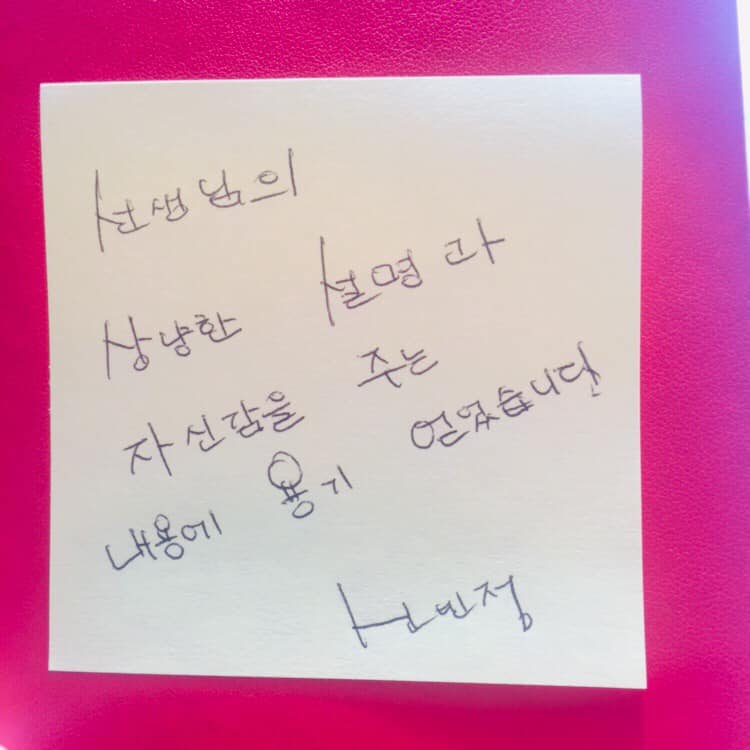 선생님의
상냥한 설명과
자신감을 주는
내용에 용기 얻었습니다